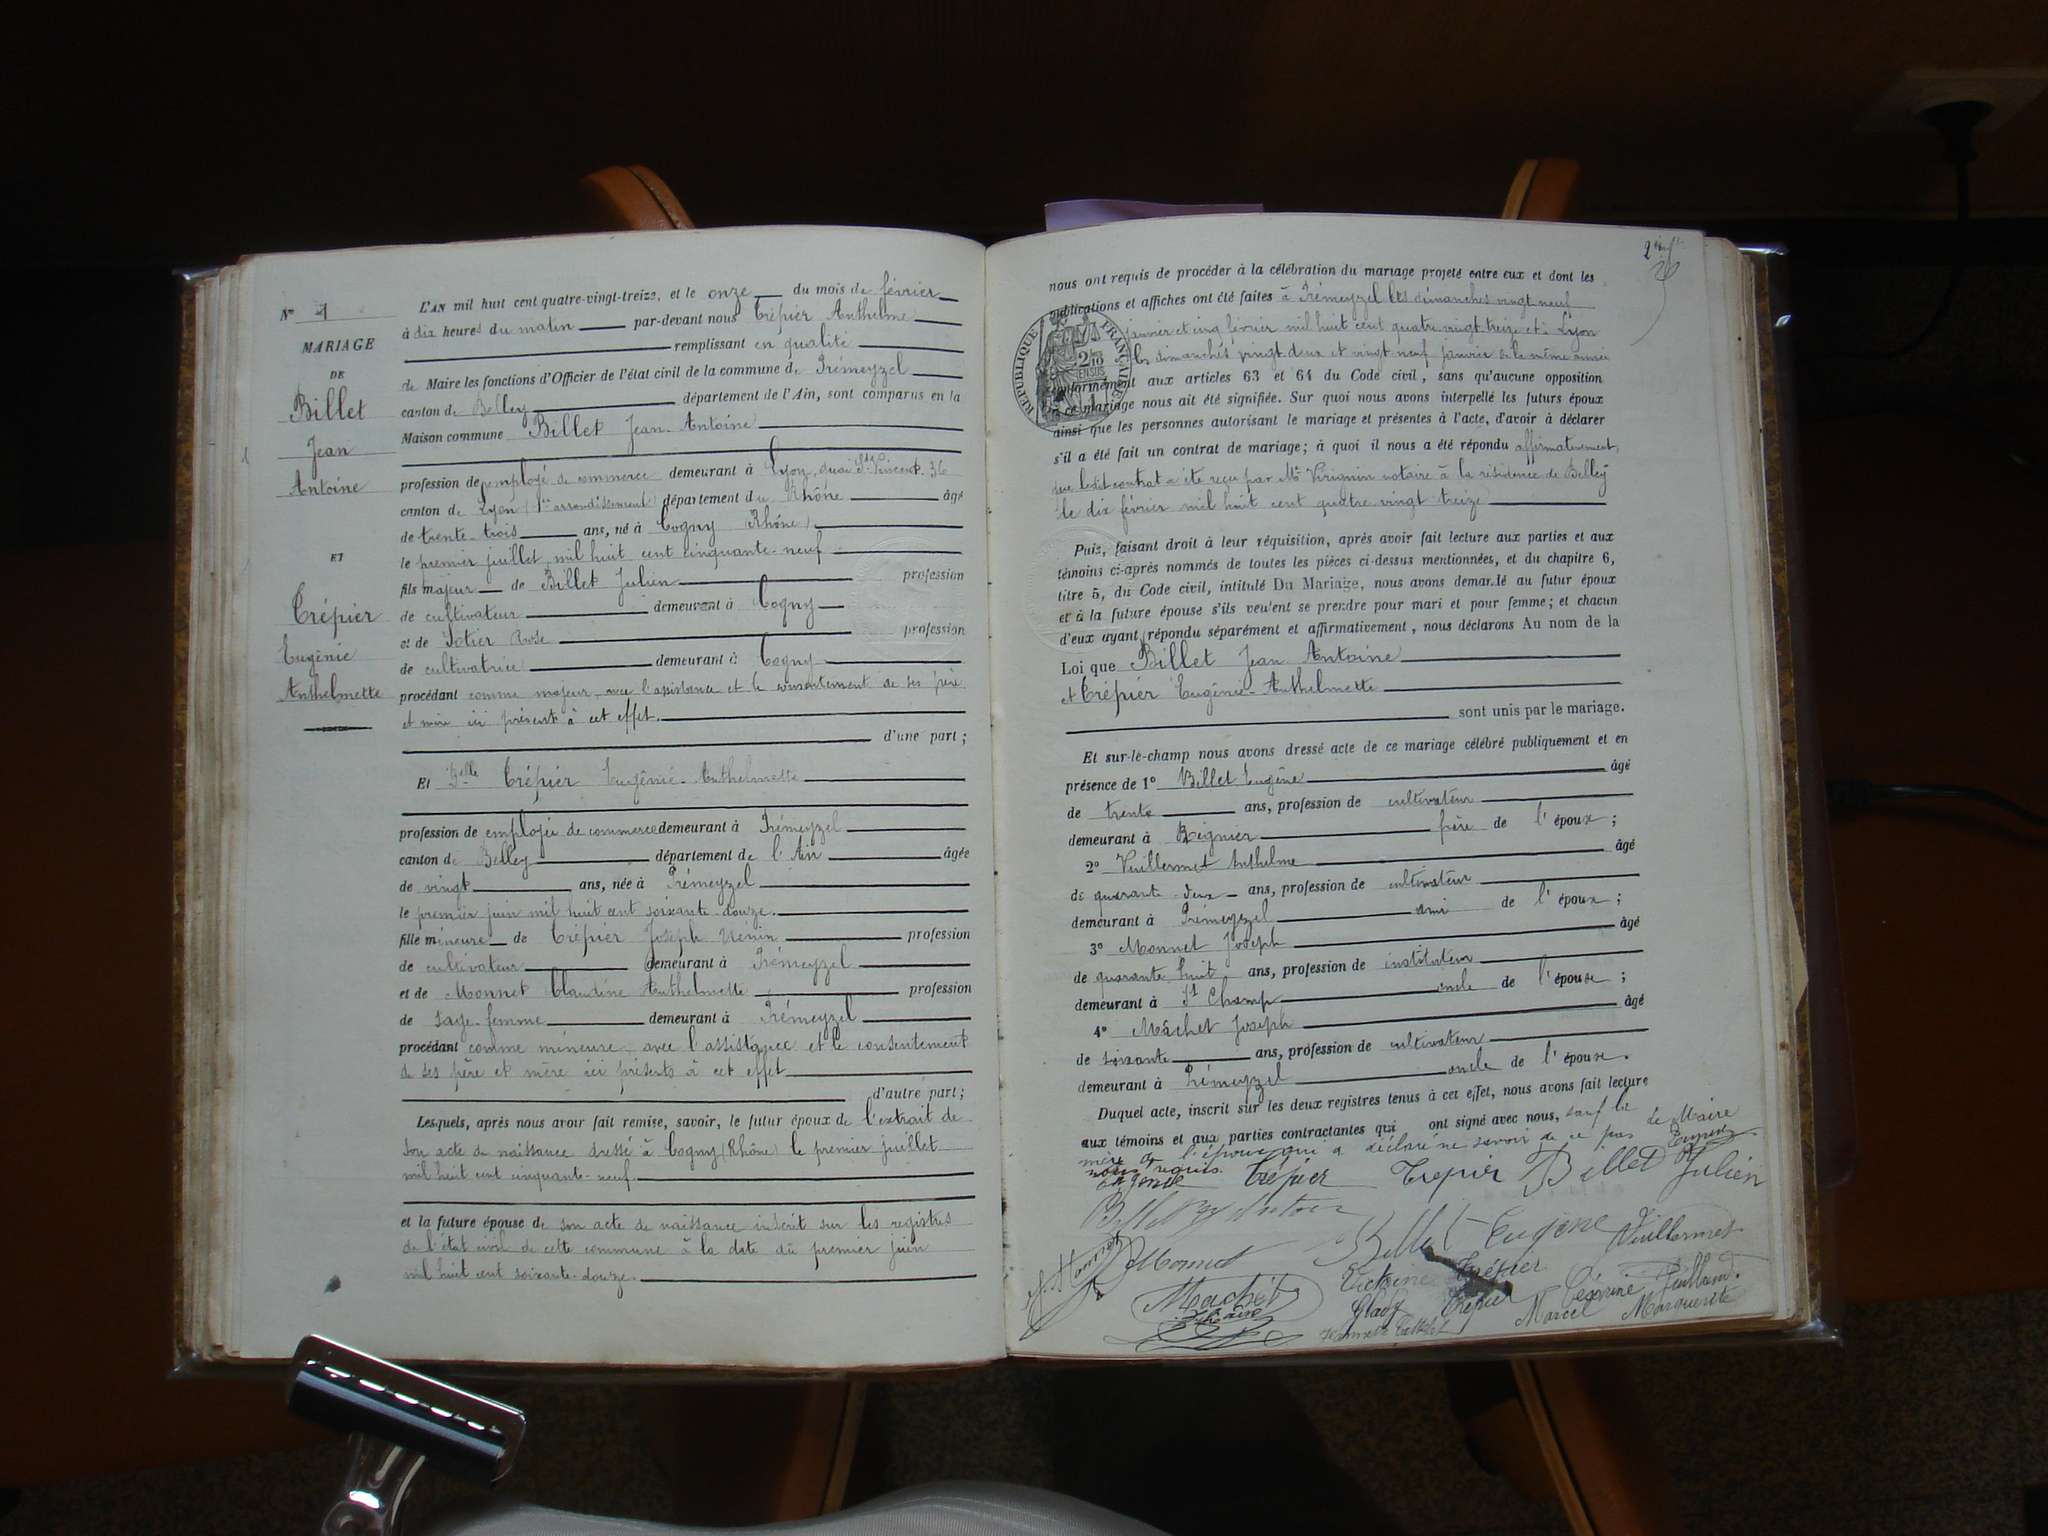 No 1
MARIAGE
DE
Billet
Jean
Antoine
ET
Trépier
Eugénie
Anthelmette
L'AN mil huit cent quatre-vingt-treize, et le onze du mois de février
à dix heures du matin par-devant nous Trépier Anthelme
remplissant en qualité
de Maire les fonctions d'Officier de l'état civil de la commune de Prémeyzel
canton de Belley département de l'Ain, sont comparus en la
Maison commune Billet Jean-Antoine
profession de employé de commerce demeurant à Lyon, quai St Vincent, 36
canton de Lyon (1er arrondissement) département du Rhône âgé
de trente-trois ans, né à Cogny (Rhône)
le premier juillet mil huit cent cinquante-neuf
fils majeur de Billet Julien profession
de cultivateur demeurant à Cogny
et de Sotier Rose profession
de cultivatrice demeurant à Cogny
procédant comme majeur, avec l'assistance et le consentement de ses père
et mère ici présents à cet effet.
d'une part ;
Et Delle Trépier Eugénie-Anthelmette
profession de employée de commerce demeurant à Prémeyzel
canton de Belley département de l'Ain âgée
de vingt ans, née à Prémeyzel
le premier juin mil huit cent soixante-douze.
fille mineure de Trépier Joseph profession
de cultivateur demeurant à Prémeyzel
et de Monnet Claudine Anthelmette profession
de sage-femme demeurant à Prémeyzel
procédant comme mineure, avec l'assistance et le consentement
de ses père et mère ici présents à cet effet
d'autre part ;
Lesquels, après nous avoir fait remise, savoir, le futur époux de l'extrait de
son acte de naissance dressé à Cogny (Rhône) le premier juillet
mil huit cent cinquante-neuf.
et la future épouse de son acte de naissance inscrit sur les registres
de l'état civil de cette commune à la date du premier juin
mil huit cent soixante-douze.
nous ont requis de procéder à la célébration du mariage projeté entre eux et dont les
publications et affiches ont été faites à Prémeyzel les dimanches vingt neuf
janvier et cinq février mil huit cent quatre vingt treize et à Lyon
les dimanches vingt-deux et vingt-neuf janvier de la même année
RÉPUBLIQUE FRANÇAISE
conformément aux articles 63 et 64 du Code civil, sans qu'aucune opposition
à ce mariage nous ait été signifiée. Sur quoi nous avons interpellé les futurs époux
ainsi que les personnes autorisant le mariage et présentes à l'acte, d'avoir à déclarer
s'il a été fait un contrat de mariage ; à quoi il nous a été répondu affirmativement,
que ledit contrat a été reçu par Me notaire à la résidence de Belley
le dix février mil huit cent quatre vingt treize
Puis, faisant droit à leur réquisition, après avoir fait lecture aux parties et aux
témoins ci-après nommés de toutes les pièces ci-dessus mentionnées, et du chapitre 6,
titre 5, du Code civil, intitulé Du Mariage, nous avons demandé au futur époux
et à la future épouse s'ils veulent se prendre pour mari et pour femme ; et chacun
d'eux ayant répondu séparément et affirmativement, nous déclarons Au nom de la
Loi que Billet Jean Antoine
et Trépier Eugénie-Anthelmette
sont unis par le mariage.
Et sur-le-champ nous avons dressé acte de ce mariage célébré publiquement et en
présence de 1° Billet Eugène âgé
de trente ans, profession de cultivateur
demeurant à Régnier frère de l'époux ;
2° Vuillermet Anthelme âgé
de quarante-deux ans, profession de cultivateur
demeurant à Prémeyzel ami de l'époux ;
3° Monnet Joseph âgé
de quarante huit ans, profession de instituteur
demeurant à St Champ oncle de l'épouse ;
4° Mâchet Joseph âgé
de soixante ans, profession de cultivateur
demeurant à Prémeyzel oncle de l'épouse.
Duquel acte, inscrit sur les deux registres tenus à cet effet, nous avons fait lecture
aux témoins et aux parties contractantes qui ont signé avec nous, sauf la
mère de l'époux qui a déclaré ne savoir de ce
requis
Le Maire
Trépier Trepier Billet Julien
Billet
Billet Eugène Vuillermet
Monnet Monnet
Machet
Trépier
Glady Trépier
Marcel Marguerite